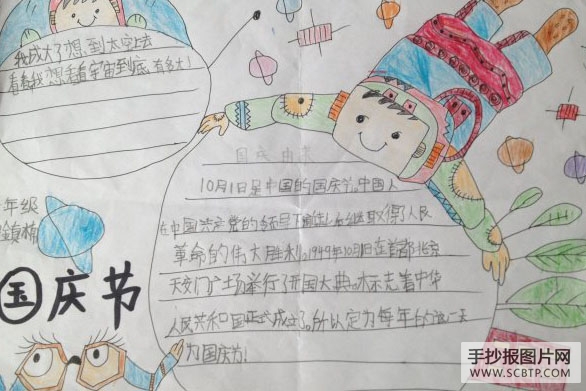 我成大了想到太空上去
看看我想看看宇宙到底有多大!
国庆由来
10月1日是中国的国庆节。中国人
在中国共产党的领导下前赴后继取得了人民
革命的伟大胜利。1949年10月1日在首都北京
天安门广场举行了开国大典。标志着中华
人民共和国正式成立了。所以定为每年的这一天
为国庆节!
年级
国庆节
手抄报图片网
WWW.SCBTP.COM